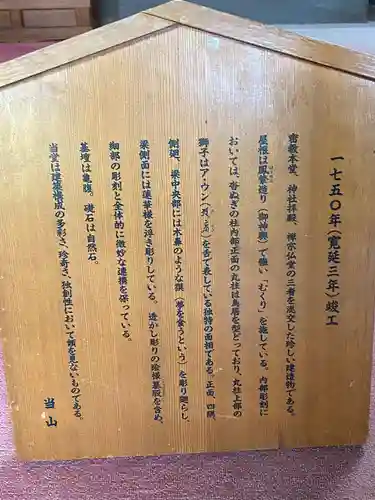 一七五〇年（寛延三年）竣工
密教本堂、神社拝殿、禅宗仏堂の三者を混交した珍しい建造物である。
屋根は鳳輦造り（御神輿）で強い「むくり」を施している。内部彫刻に
おいては、沓ぬぎの柱内部正面の丸柱は鳥居を型どっており、丸柱上部の
獅子はア・ウンを舌で表している独特の面相である。正面、四隅、
側廻、梁中央部には木鼻のような獏（夢を食うという）を彫り廻らし、
梁側面には蓮華様を浮き彫りしている。透かし彫りの絵様蟇股を含め、
細部の彫刻と全体的に微妙な連携を保っている。
基壇は亀腹。礎石は自然石。
当堂は建築構成の多彩さ、珍奇さ、独創性において類を見ないものである。
当山